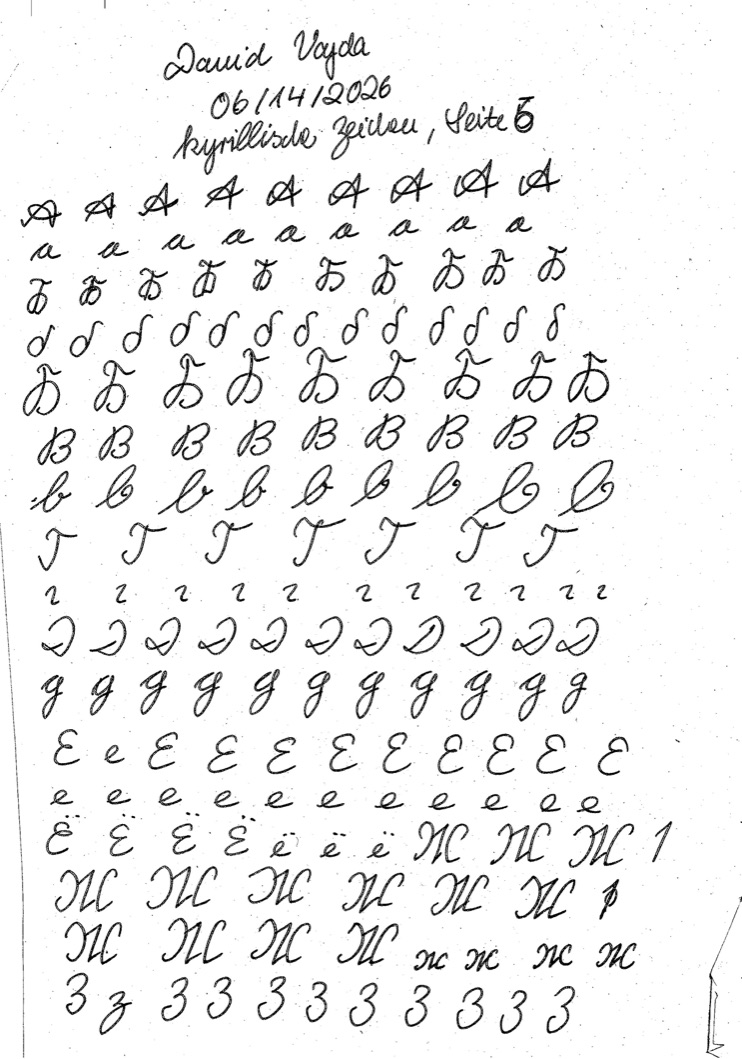 David Vajda
06/14/2026
kyrillische Zeichen, Seite 6
А А А А А А А А А
а а а а а а а а а
Б Б Б Б Б Б Б Б Б Б
б б б б б б б б б б б б б
Б Б Б Б Б Б Б Б Б
В В В В В В В В В
в в в в в в в в в
Г Г Г Г Г Г Г
г г г г г г г г г г г
Д Д Д Д Д Д Д Д Д Д Д
д д д д д д д д д д д
Е е Е Е Е Е Е Е Е Е Е
е е е е е е е е е е е
Ё Ё Ё Ё ё ё ё Ж Ж Ж 1
Ж Ж Ж Ж Ж Ж
Ж Ж Ж Ж ж ж ж ж
З з З З З З З З З З З